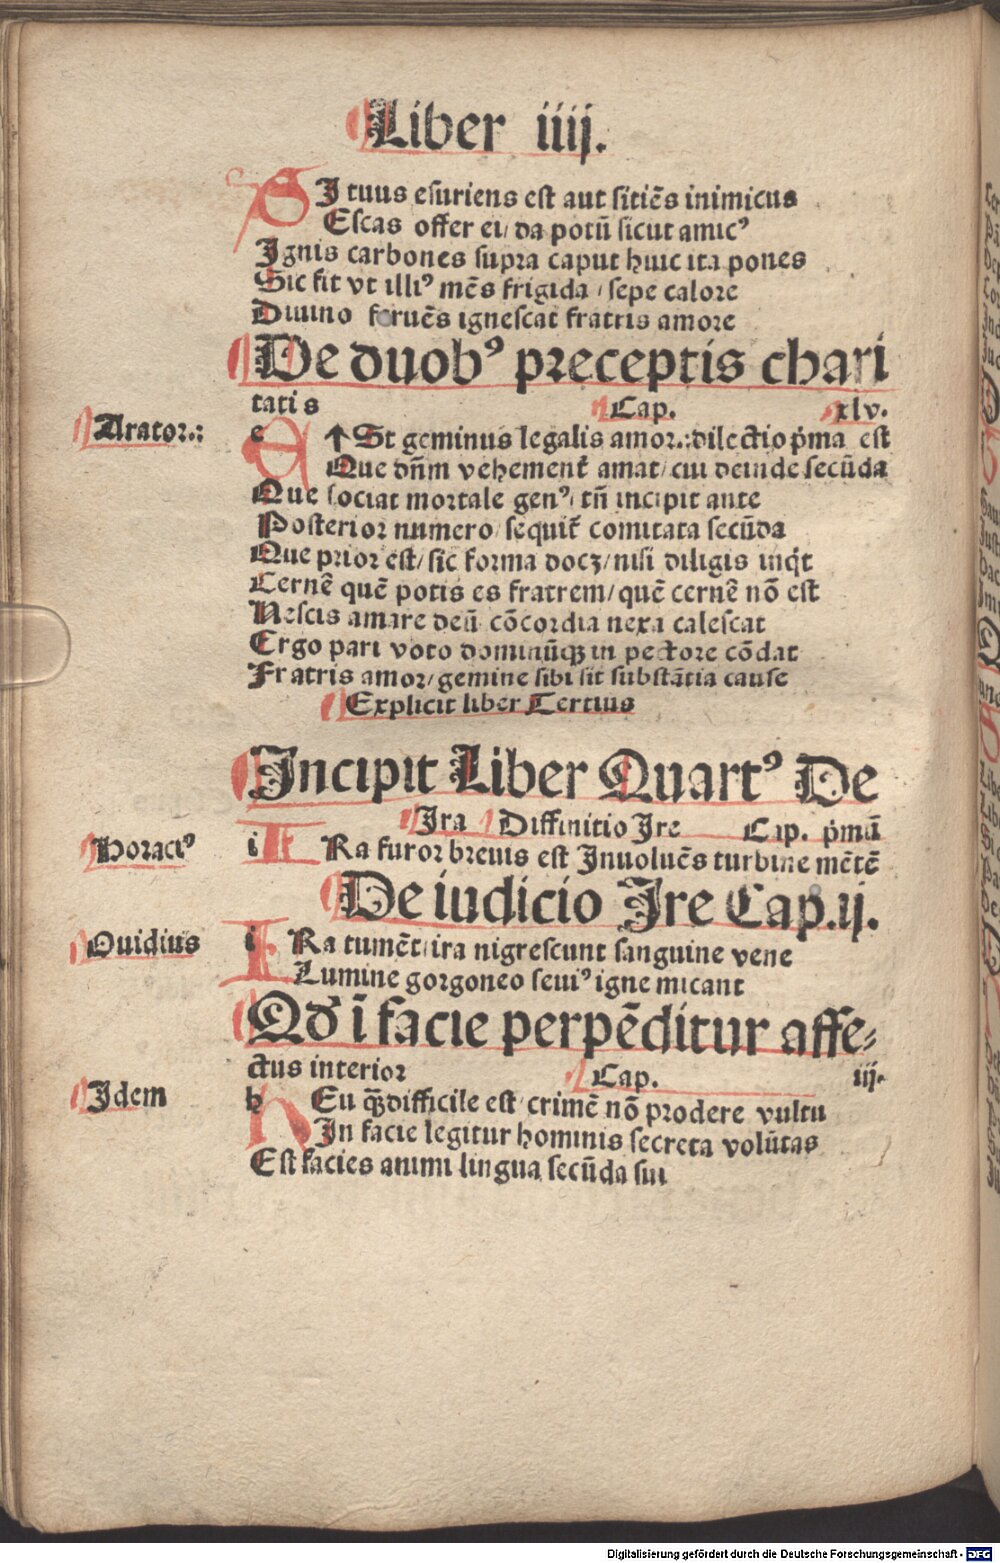 Liber iiij.
SI tuus esuriens est aut sitiẽs inimicus
Escas offer ei/ da potũ sicut amicꝰ
Ignis carbones supra caput huic ita pones
Sic fit vt illiꝰ mẽs frigida / sepe calore
Diuino feruẽs ignescat fratris amore
De duobꝰ preceptis chari
tatis Cap. xlv.
Arator.: e ESt geminus legalis amor.: dilectio p̃ma est
Que dñm vehement̃ amat/ cui deinde secũda
Que sociat mortale genꝰ/ tñ incipit ante
Posterior numero/ sequit̃ comitata secũda
Que prior est/ sic forma docꝫ/ nisi diligis inq̇t
Cernẽ quẽ potis es fratrem/ quẽ cernẽ nõ est
Nescis amare deũ cõcordia nexa calescat
Ergo pari voto dominũqꝫ in pectore cõdat
Fratris amor/ gemine sibi sit substãtia cause
Explicit liber Tertius
Incipit Liber Quartꝰ De
Ira Diffinitio Ire Cap. p̃mũ
Horaciꝰ i IRa furor breuis est Inuoluẽs turbine mẽtẽ
De iudicio Ire Cap.ij.
Ouidius i IRa tumẽt/ ira nigrescunt sanguine vene
Lumine gorgoneo seuiꝰ igne micant
Qđ ĩ facie perpẽditur affe⸗
ctus interior Cap. iij.
Idem h HEu q̃ꝫ difficile est crimẽ nõ prodere vultu
In facie legitur hominis secreta volũtas
Est facies animi lingua secũda sui
Digitalisierung gefördert durch die Deutsche Forschungsgemeinschaft - DFG